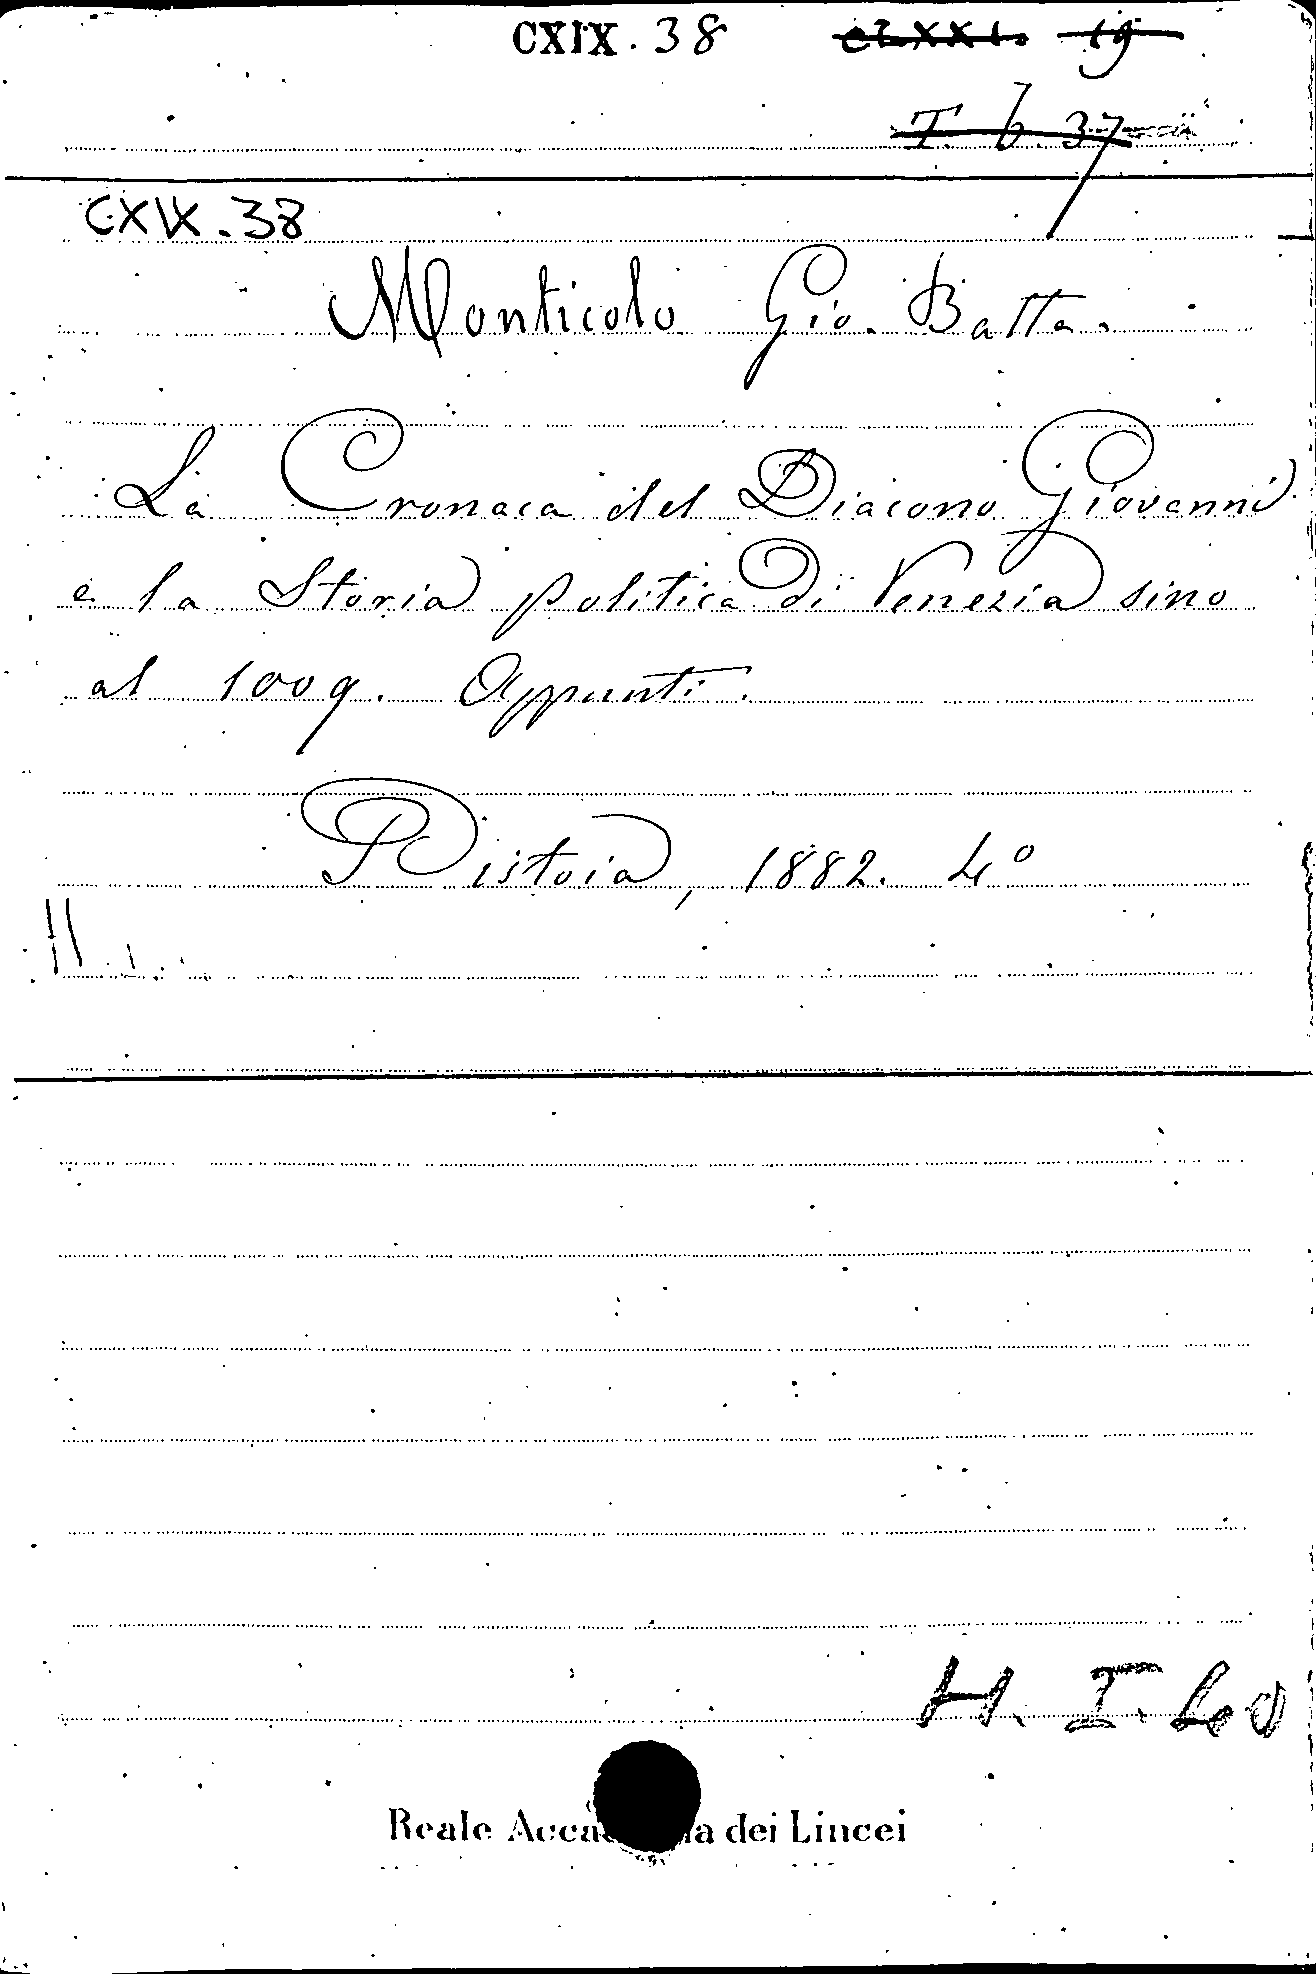 CXIX. 38 CLXXI. 19
T. b. 37
CXIX. 38
Monticolo Gio. Batta.
La Cronaca del Diacono Giovanni
e la Storia politica di Venezia sino
al 1009. Appunti.
Pistoia, 1882. 4°
H. I. 40
Reale dei Lincei